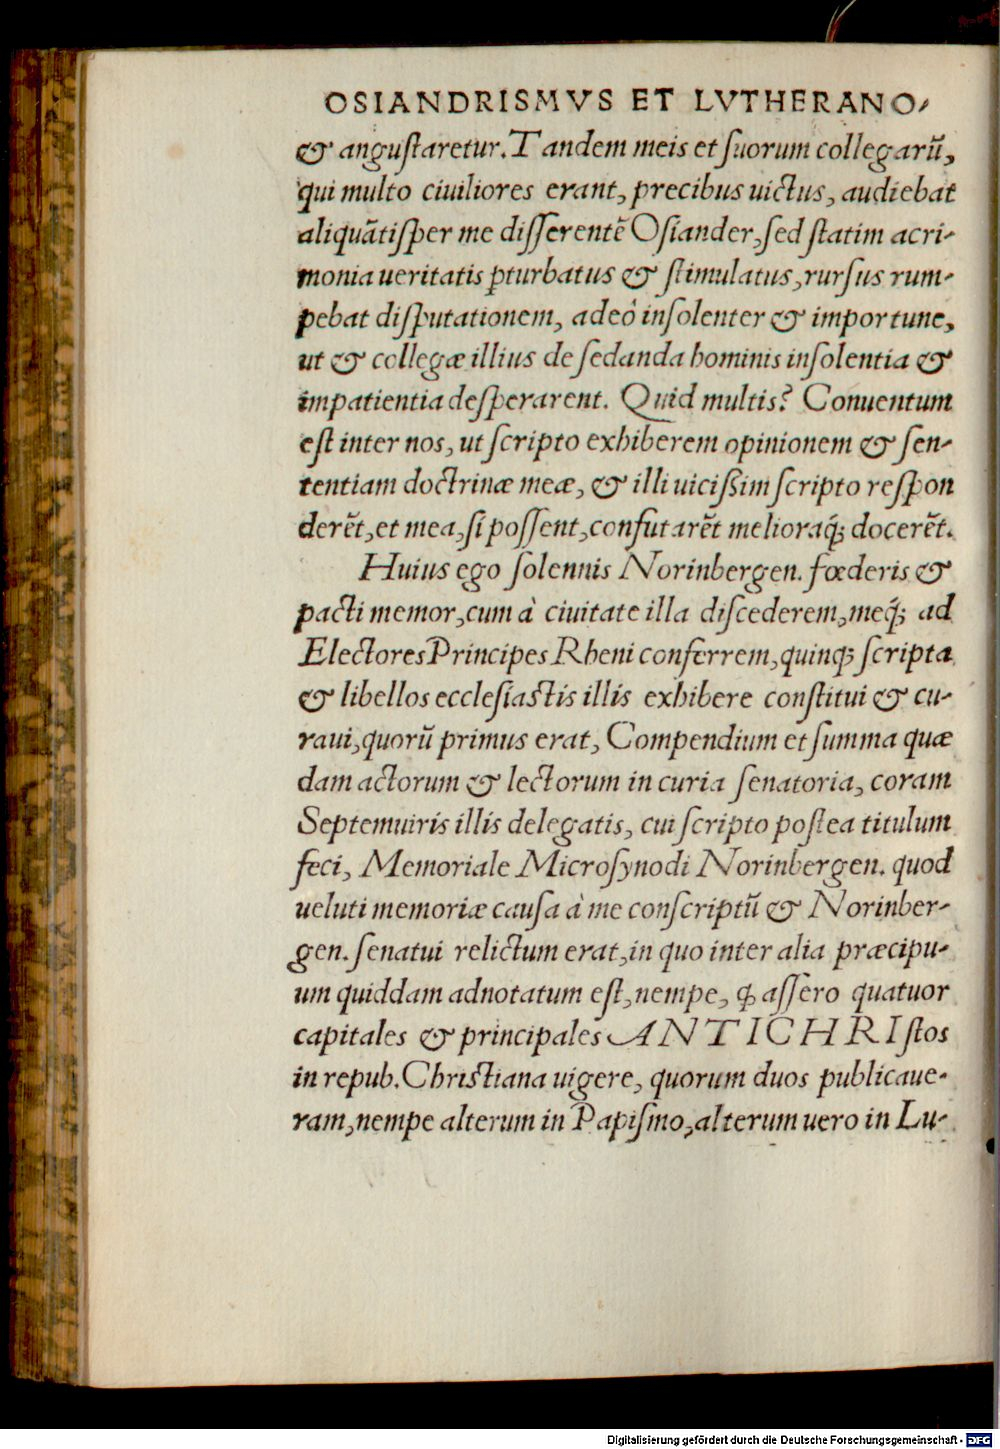 OSIANDRISMVS ET LVTHERANO-
& anguſtaretur. Tandem meis et ſuorum collegarū,
qui multo ciuiliores erant, precibus uictus, audiebat
aliquãtiſper me diſſerentẽ Oſiander, ſed ſtatim acri-
monia ueritatis ꝑturbatus & ſtimulatus, rurſus rum-
pebat diſputationem, adeò inſolenter & importune,
ut & collegæ illius de ſedanda hominis inſolentia &
impatientia deſperarent. Quid multis? Conuentum
eſt inter nos, ut ſcripto exhiberem opinionem & ſen-
tentiam doctrinæ meæ, & illi uicißim ſcripto reſpon
derẽt, et mea, ſi poſſent, confutarẽt melioraq́; docerẽt.
Huius ego ſolennis Norinbergen. fœderis &
pacti memor, cum à ciuitate illa diſcederem, meq́; ad
Electores Principes Rheni conferrem, quinq; ſcripta
& libellos eccleſiaſtis illis exhibere conſtitui & cu-
raui, quorū primus erat, Compendium et ſumma quæ
dam actorum & lectorum in curia ſenatoria, coram
Septemuiris illis delegatis, cui ſcripto poſtea titulum
feci, Memoriale Microſynodi Norinbergen. quod
ueluti memoriæ cauſa à me conſcriptū & Norinber-
gen. ſenatui relictum erat, in quo inter alia præcipu-
um quiddam adnotatum eſt, nempe, ꝙ aſſero quatuor
capitales & principales ANTICHRIſtos
in repub. Chriſtiana uigere, quorum duos publicaue-
ram, nempe alterum in Papiſmo, alterum uero in Lu-
Digitalisierung gefördert durch die Deutsche Forschungsgemeinschaft - DFG